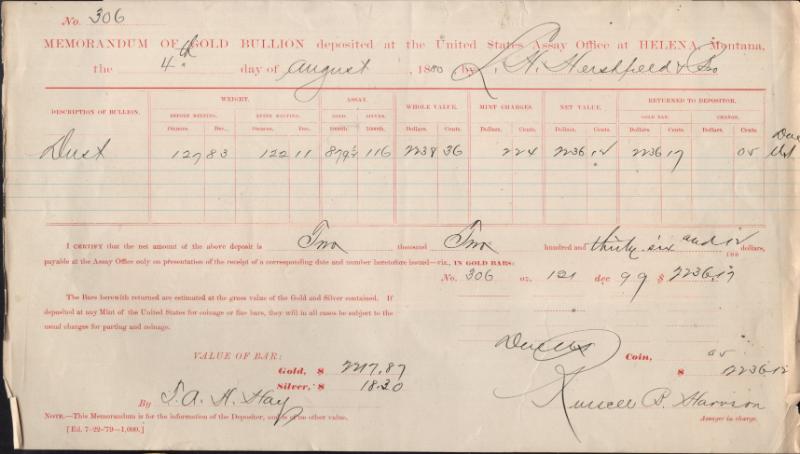 No. 306
MEMORANDUM OF GOLD BULLION deposited at the United States Assay Office at HELENA, Montana,
the 4th day of august, 1880 by L. H. Hershfield & Bro
DESCRIPTION OF BULLION. WEIGHT. ASSAY. WHOLE VALUE. MINT CHARGES. NET VALUE. RETURNED TO DEPOSITOR.
BEFORE MELTING. AFTER MELTING. GOLD. SILVER. GOLD BAR. CHANGE.
Ounces. Dec. Ounces. Dec. 1000th. 1000th. Dollars. Cents. Dollars. Cents. Dollars. Cents. Dollars. Cents. Dollars. Cents.
Dust 127 83 122 11 879½ 116 2238 36 2 24 2236 12 2236 17 05 Due
I CERTIFY that the net amount of the above deposit is Two thousand Two hundred and thirty-six and 12/100 dollars,
payable at the Assay Office only on presentation of the receipt of a corresponding date and number heretofore issued—viz., IN GOLD BARS:
No. 306 oz. 121 dec 99 $ 2236.17
The Bars herewith returned are estimated at the gross value of the Gold and Silver contained. If
deposited at any Mint of the United States for coinage or fine bars, they will in all cases be subject to the
usual charges for parting and coinage.
Due us Coin, 05
VALUE OF BAR:
Gold, $ 2217.87 $ 2236.12
Silver, $ 18.30
By T. A. H. Hay Russell B. Harrison
Assayer in charge.
NOTE.—This Memorandum is for the information of the Depositor, and is of no other value.
[Ed. 7-22-'79—1,000.]